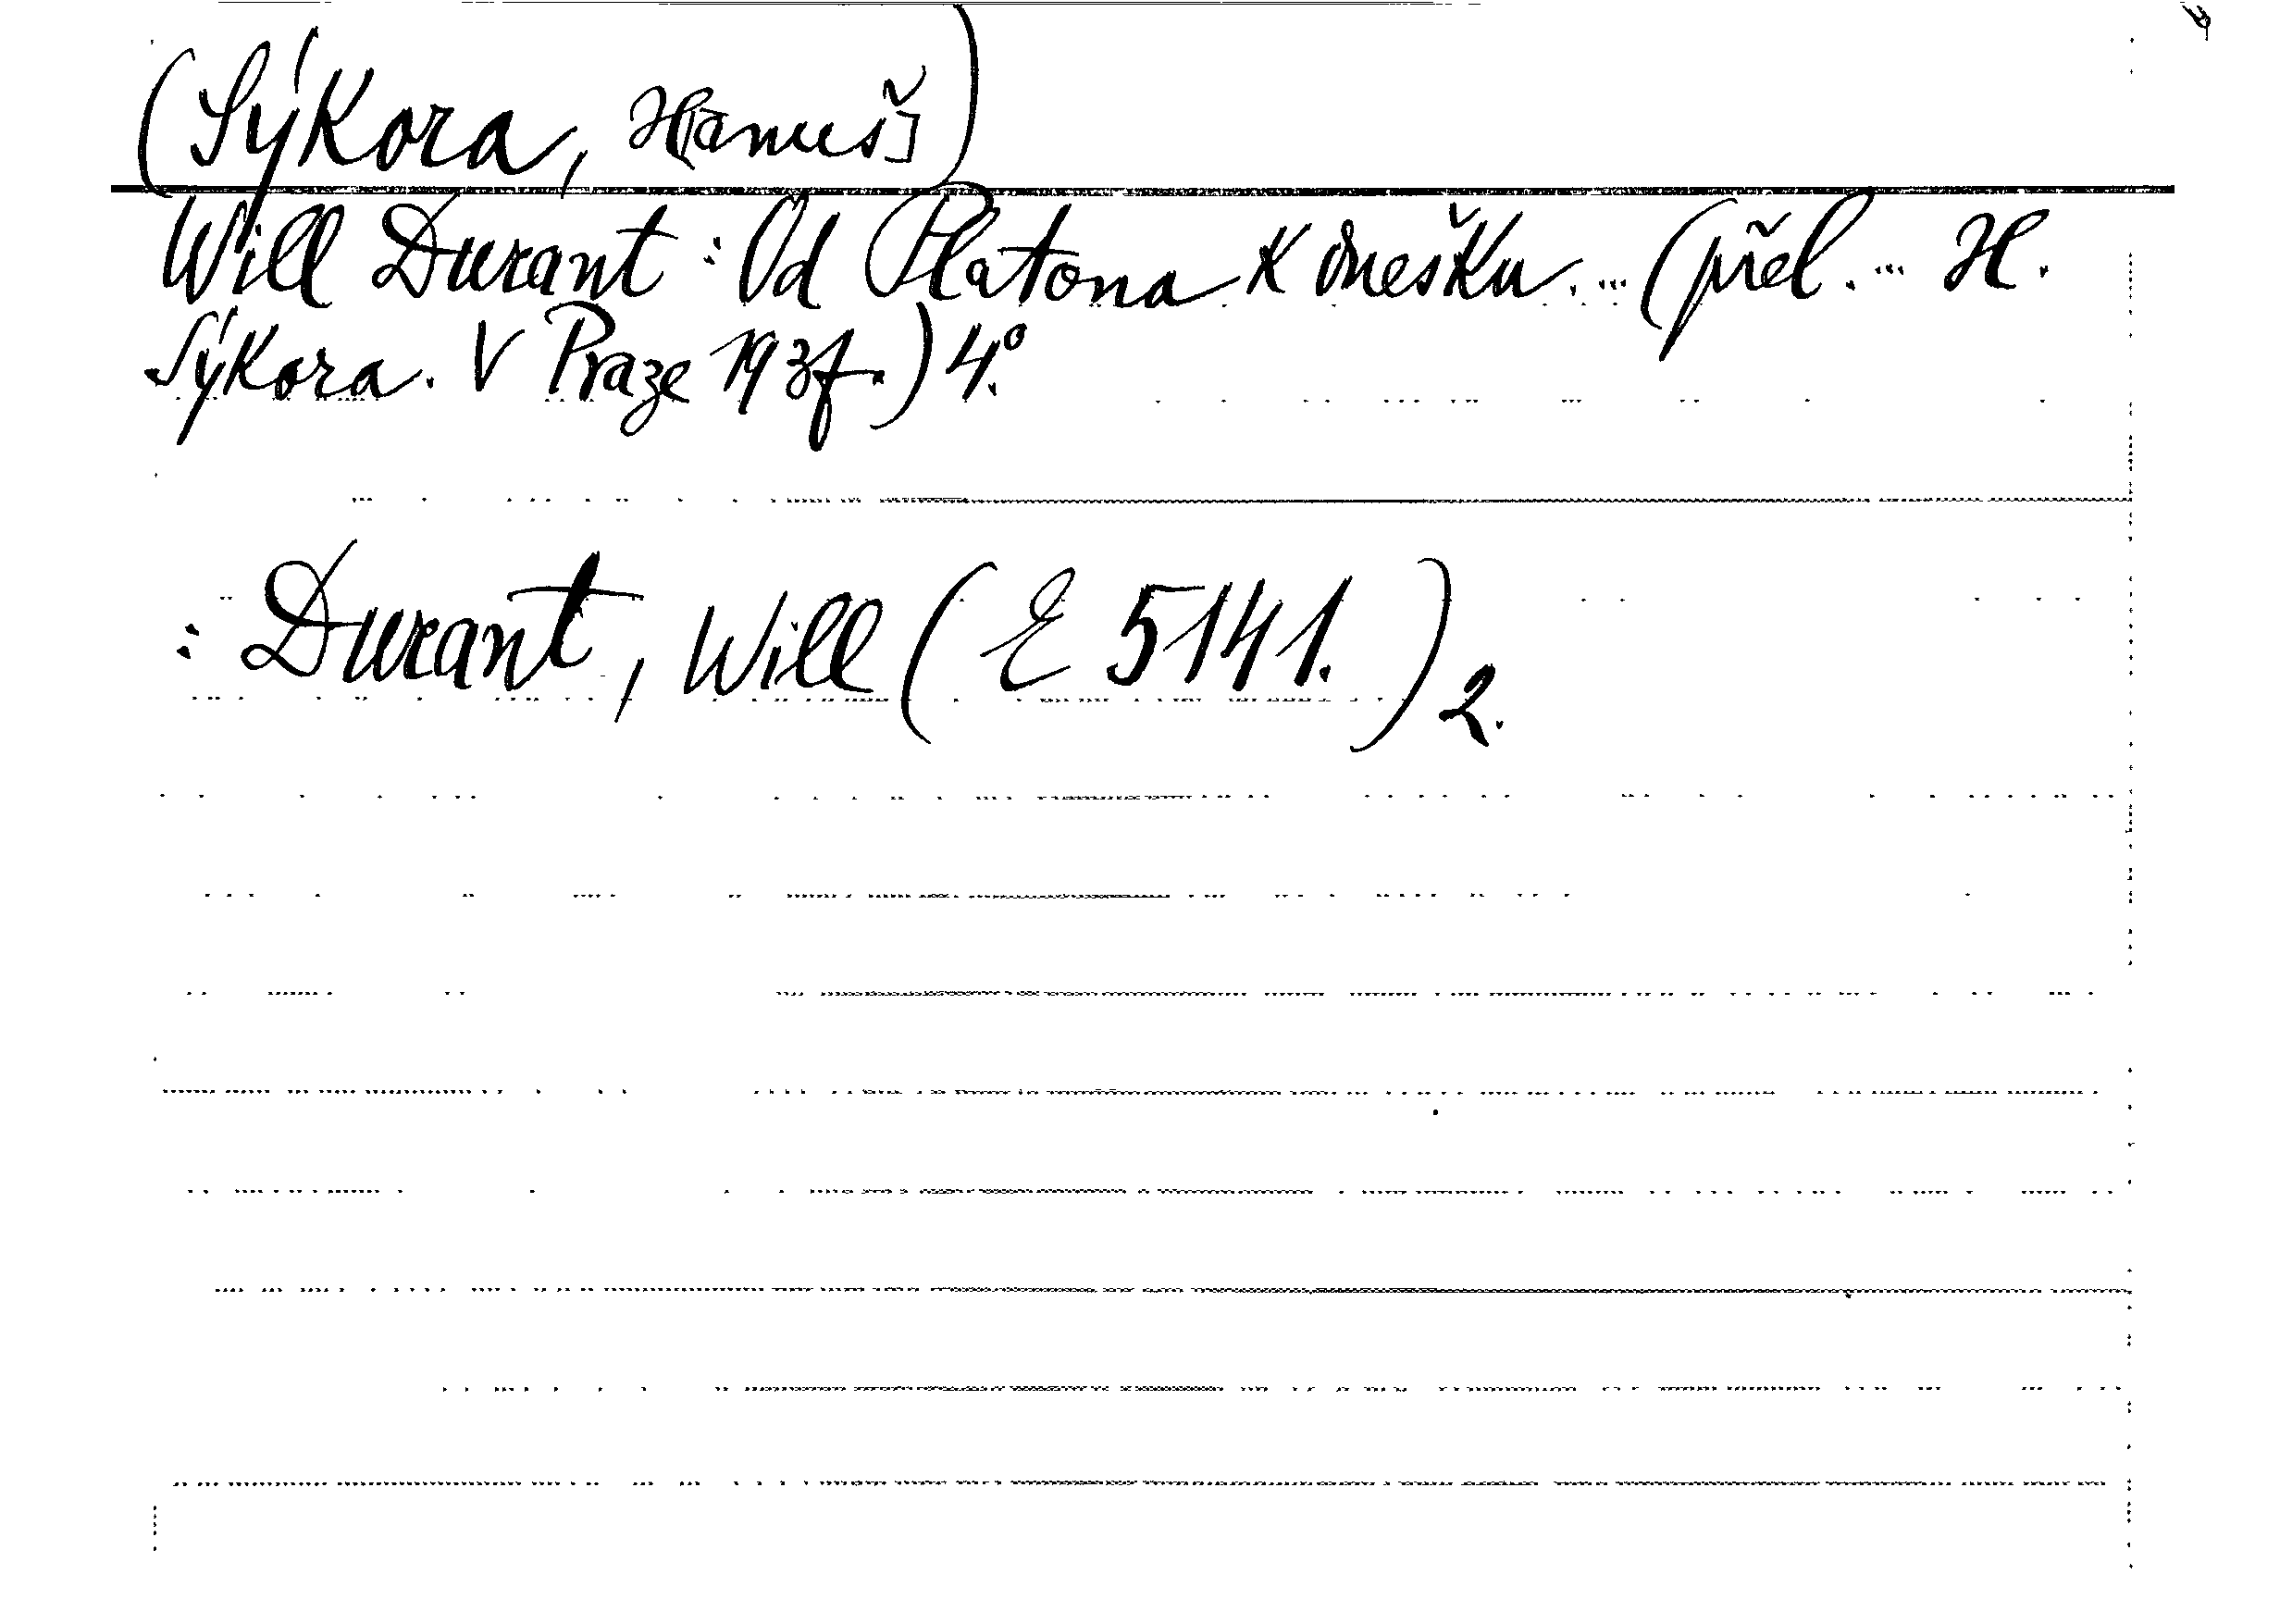 (Sýkora, H[anuš])
Will Durant: Od Platona k dnešku. ... (přel. ... H.
Sýkora. V Praze 1937.) 4.°
: Durant, Will (E 5141.) 2.